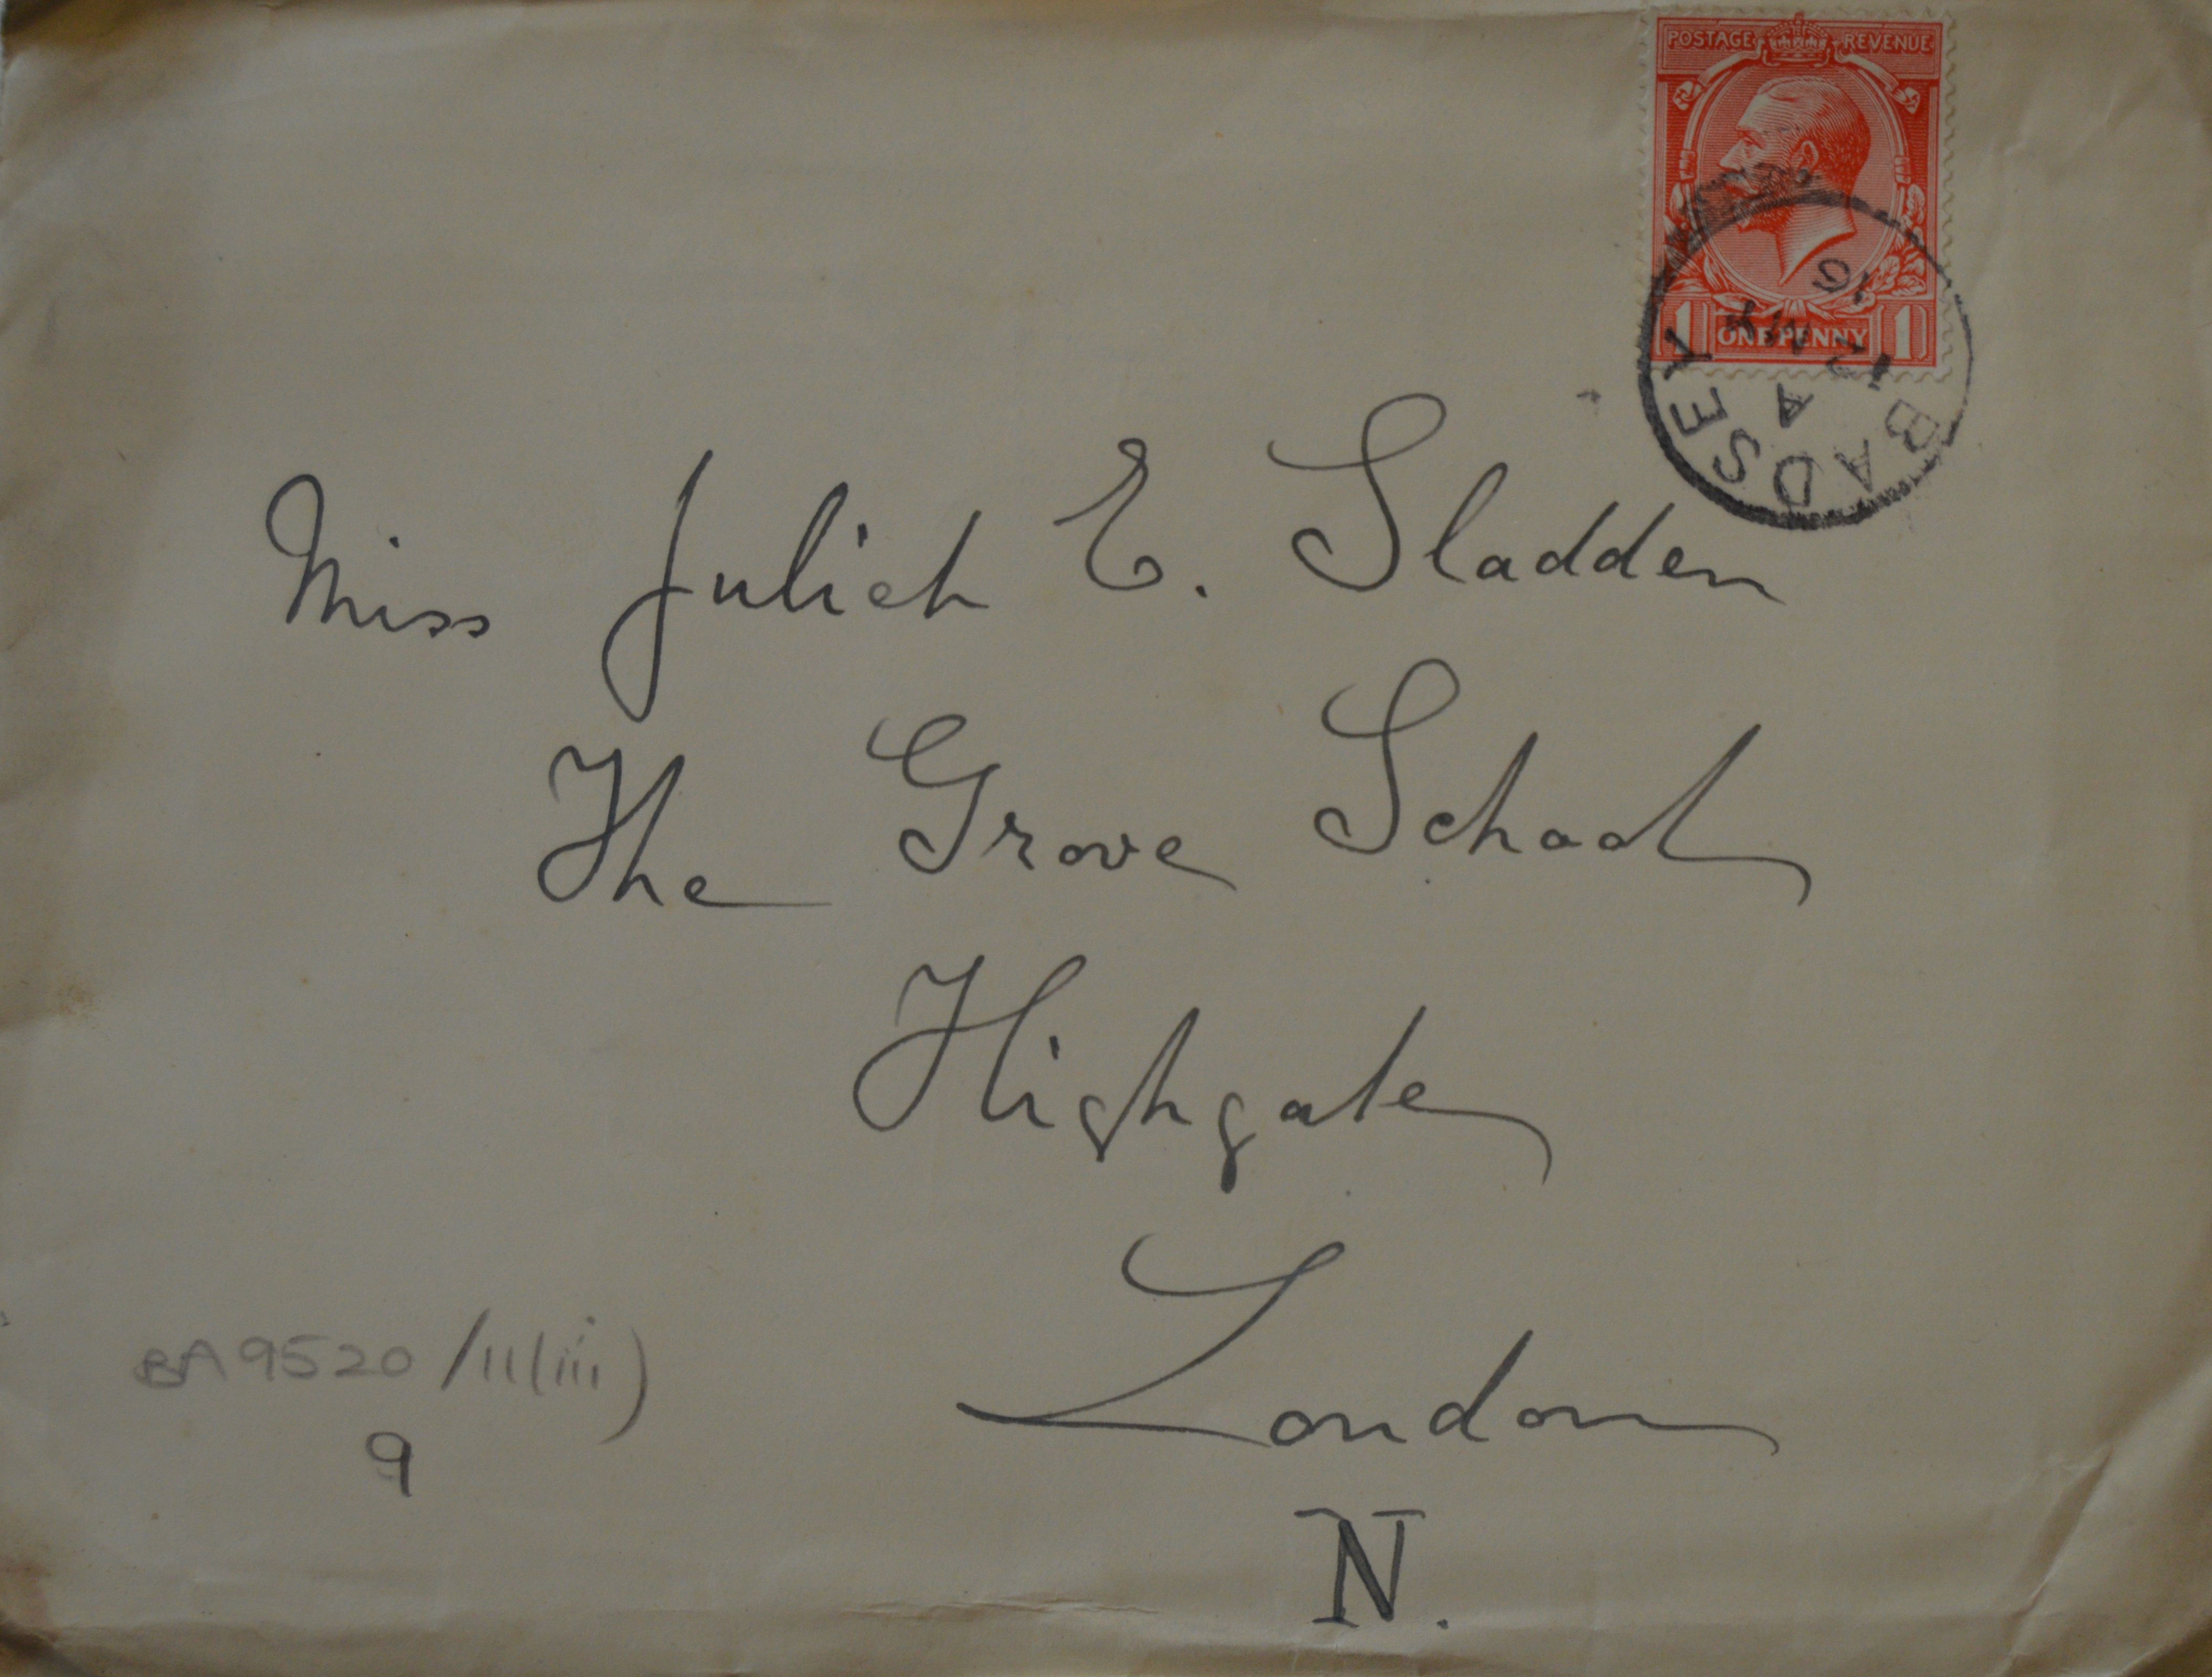 POSTAGE REVENUE
1 ONE PENNY 1
BADSEY
A
12 MR
16
Miss Juliet E. Sladden
The Grove School
Highgate
London
N.
BA9520/11(iii)
9